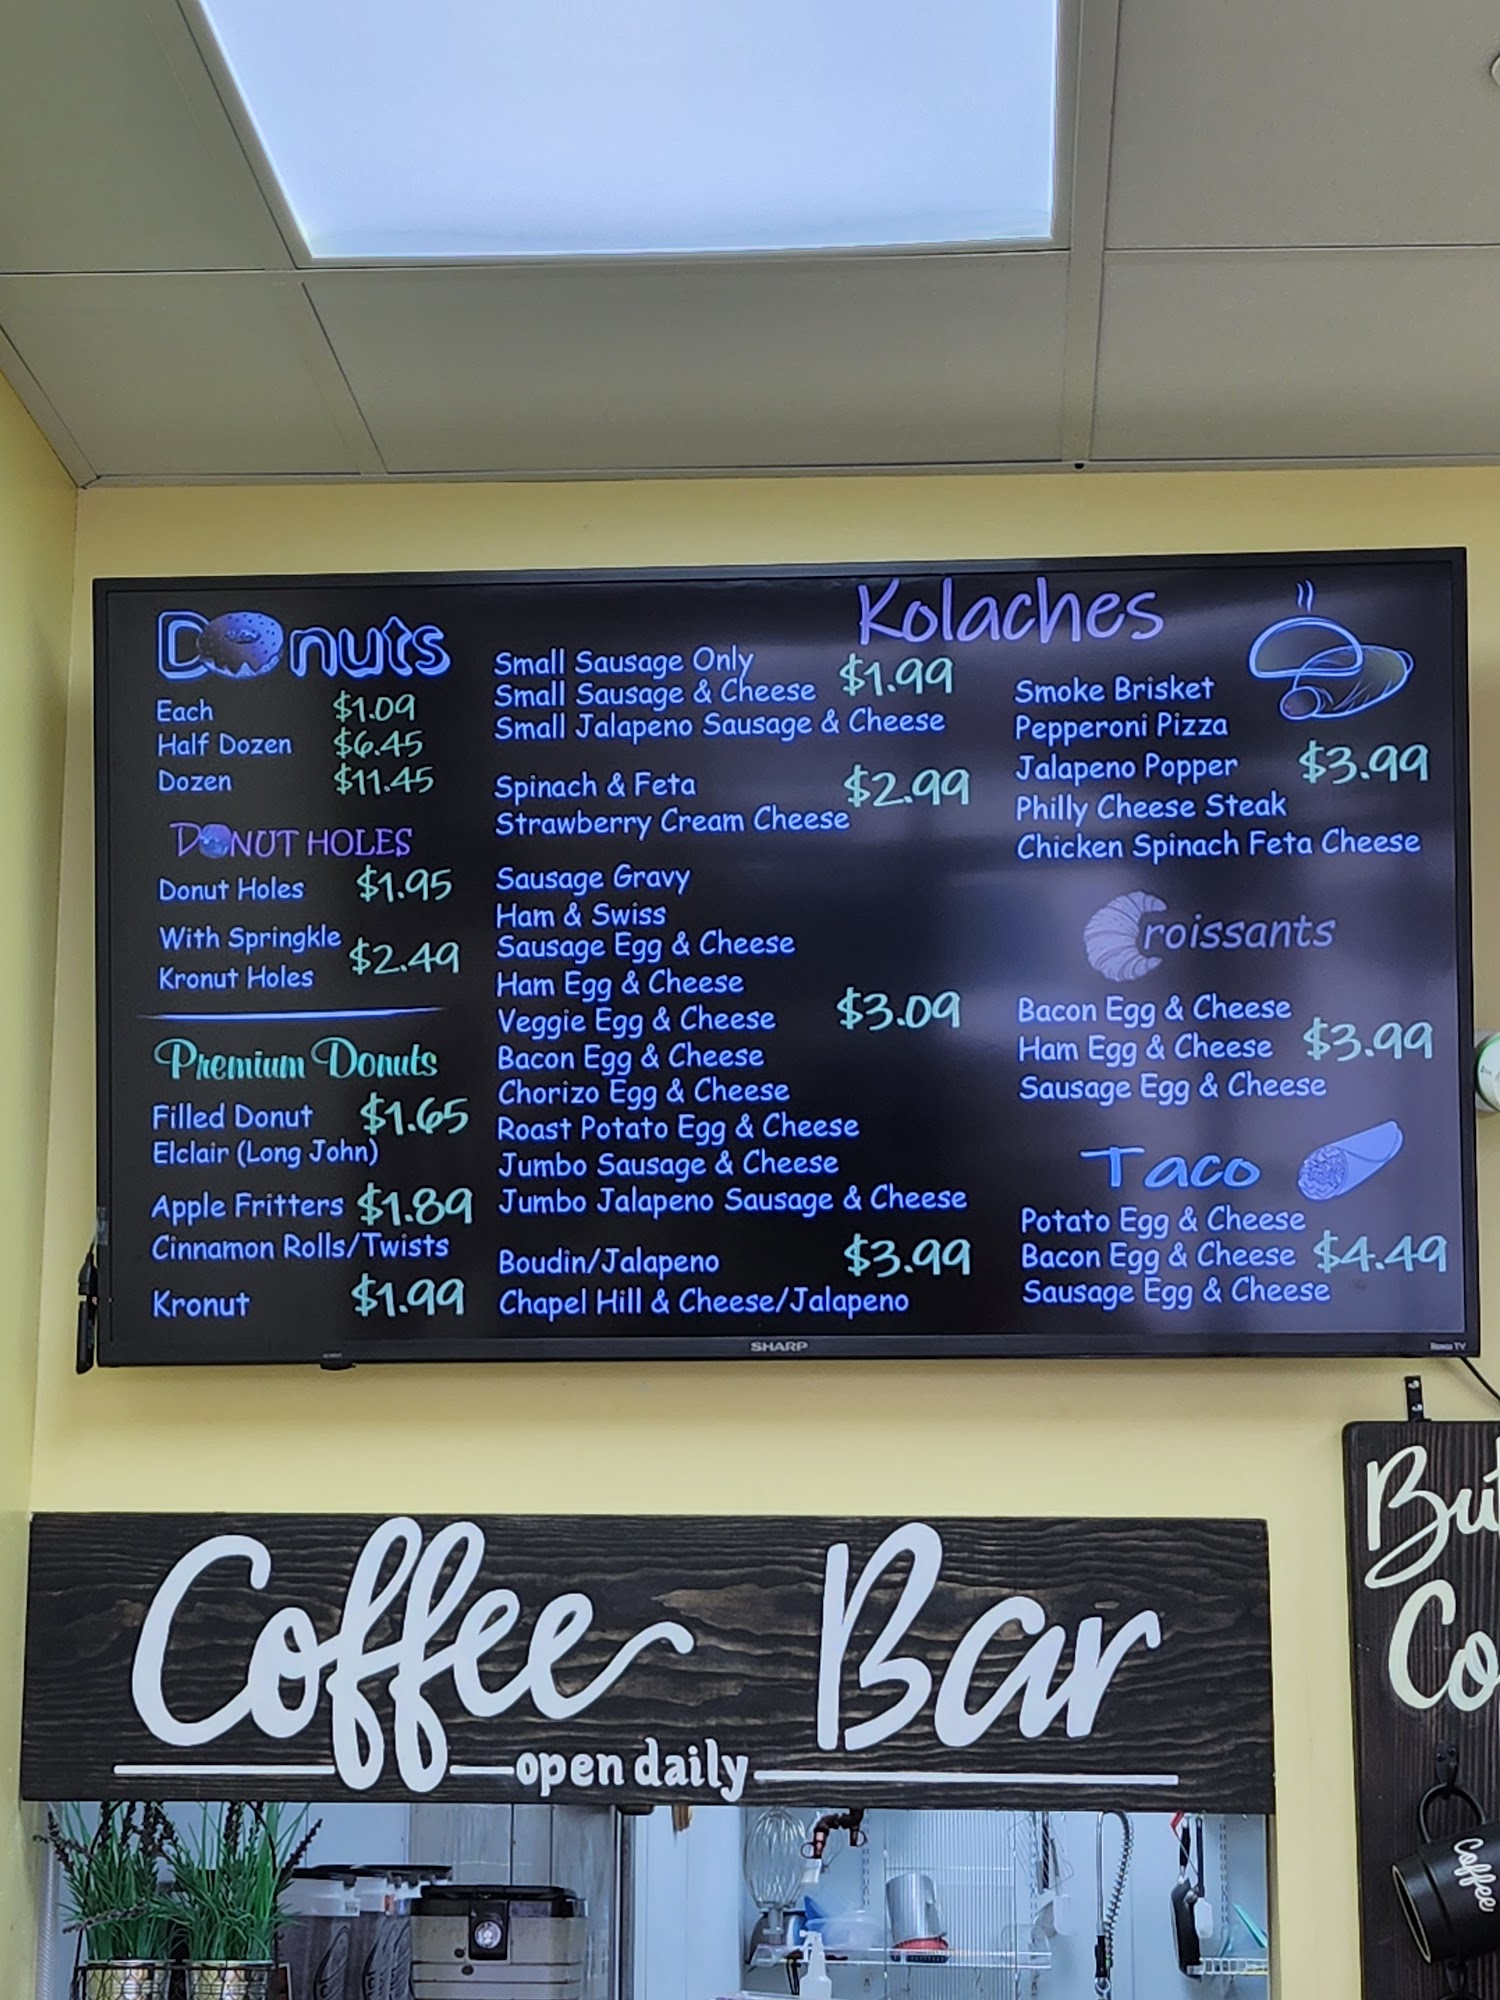 Donuts
Each $1.09
Half Dozen $6.45
Dozen $11.45
DONUT HOLES
Donut Holes $1.95
With Springkle
$2.49
Kronut Holes
Premium Donuts
Filled Donut $1.65
Elclair (Long John)
Apple Fritters $1.89
Cinnamon Rolls/Twists
Kronut $1.99
Kolaches
Small Sausage Only
Small Sausage & Cheese $1.99
Small Jalapeno Sausage & Cheese
Spinach & Feta $2.99
Strawberry Cream Cheese
Sausage Gravy
Ham & Swiss
Sausage Egg & Cheese
Ham Egg & Cheese
Veggie Egg & Cheese $3.09
Bacon Egg & Cheese
Chorizo Egg & Cheese
Roast Potato Egg & Cheese
Jumbo Sausage & Cheese
Jumbo Jalapeno Sausage & Cheese
Boudin/Jalapeno $3.99
Chapel Hill & Cheese/Jalapeno
Smoke Brisket
Pepperoni Pizza
Jalapeno Popper $3.99
Philly Cheese Steak
Chicken Spinach Feta Cheese
Croissants
Bacon Egg & Cheese
Ham Egg & Cheese $3.99
Sausage Egg & Cheese
Taco
Potato Egg & Cheese
Bacon Egg & Cheese $4.49
Sausage Egg & Cheese
SHARP
Roku TV
Coffee Bar
open daily
But
Co
Coffee